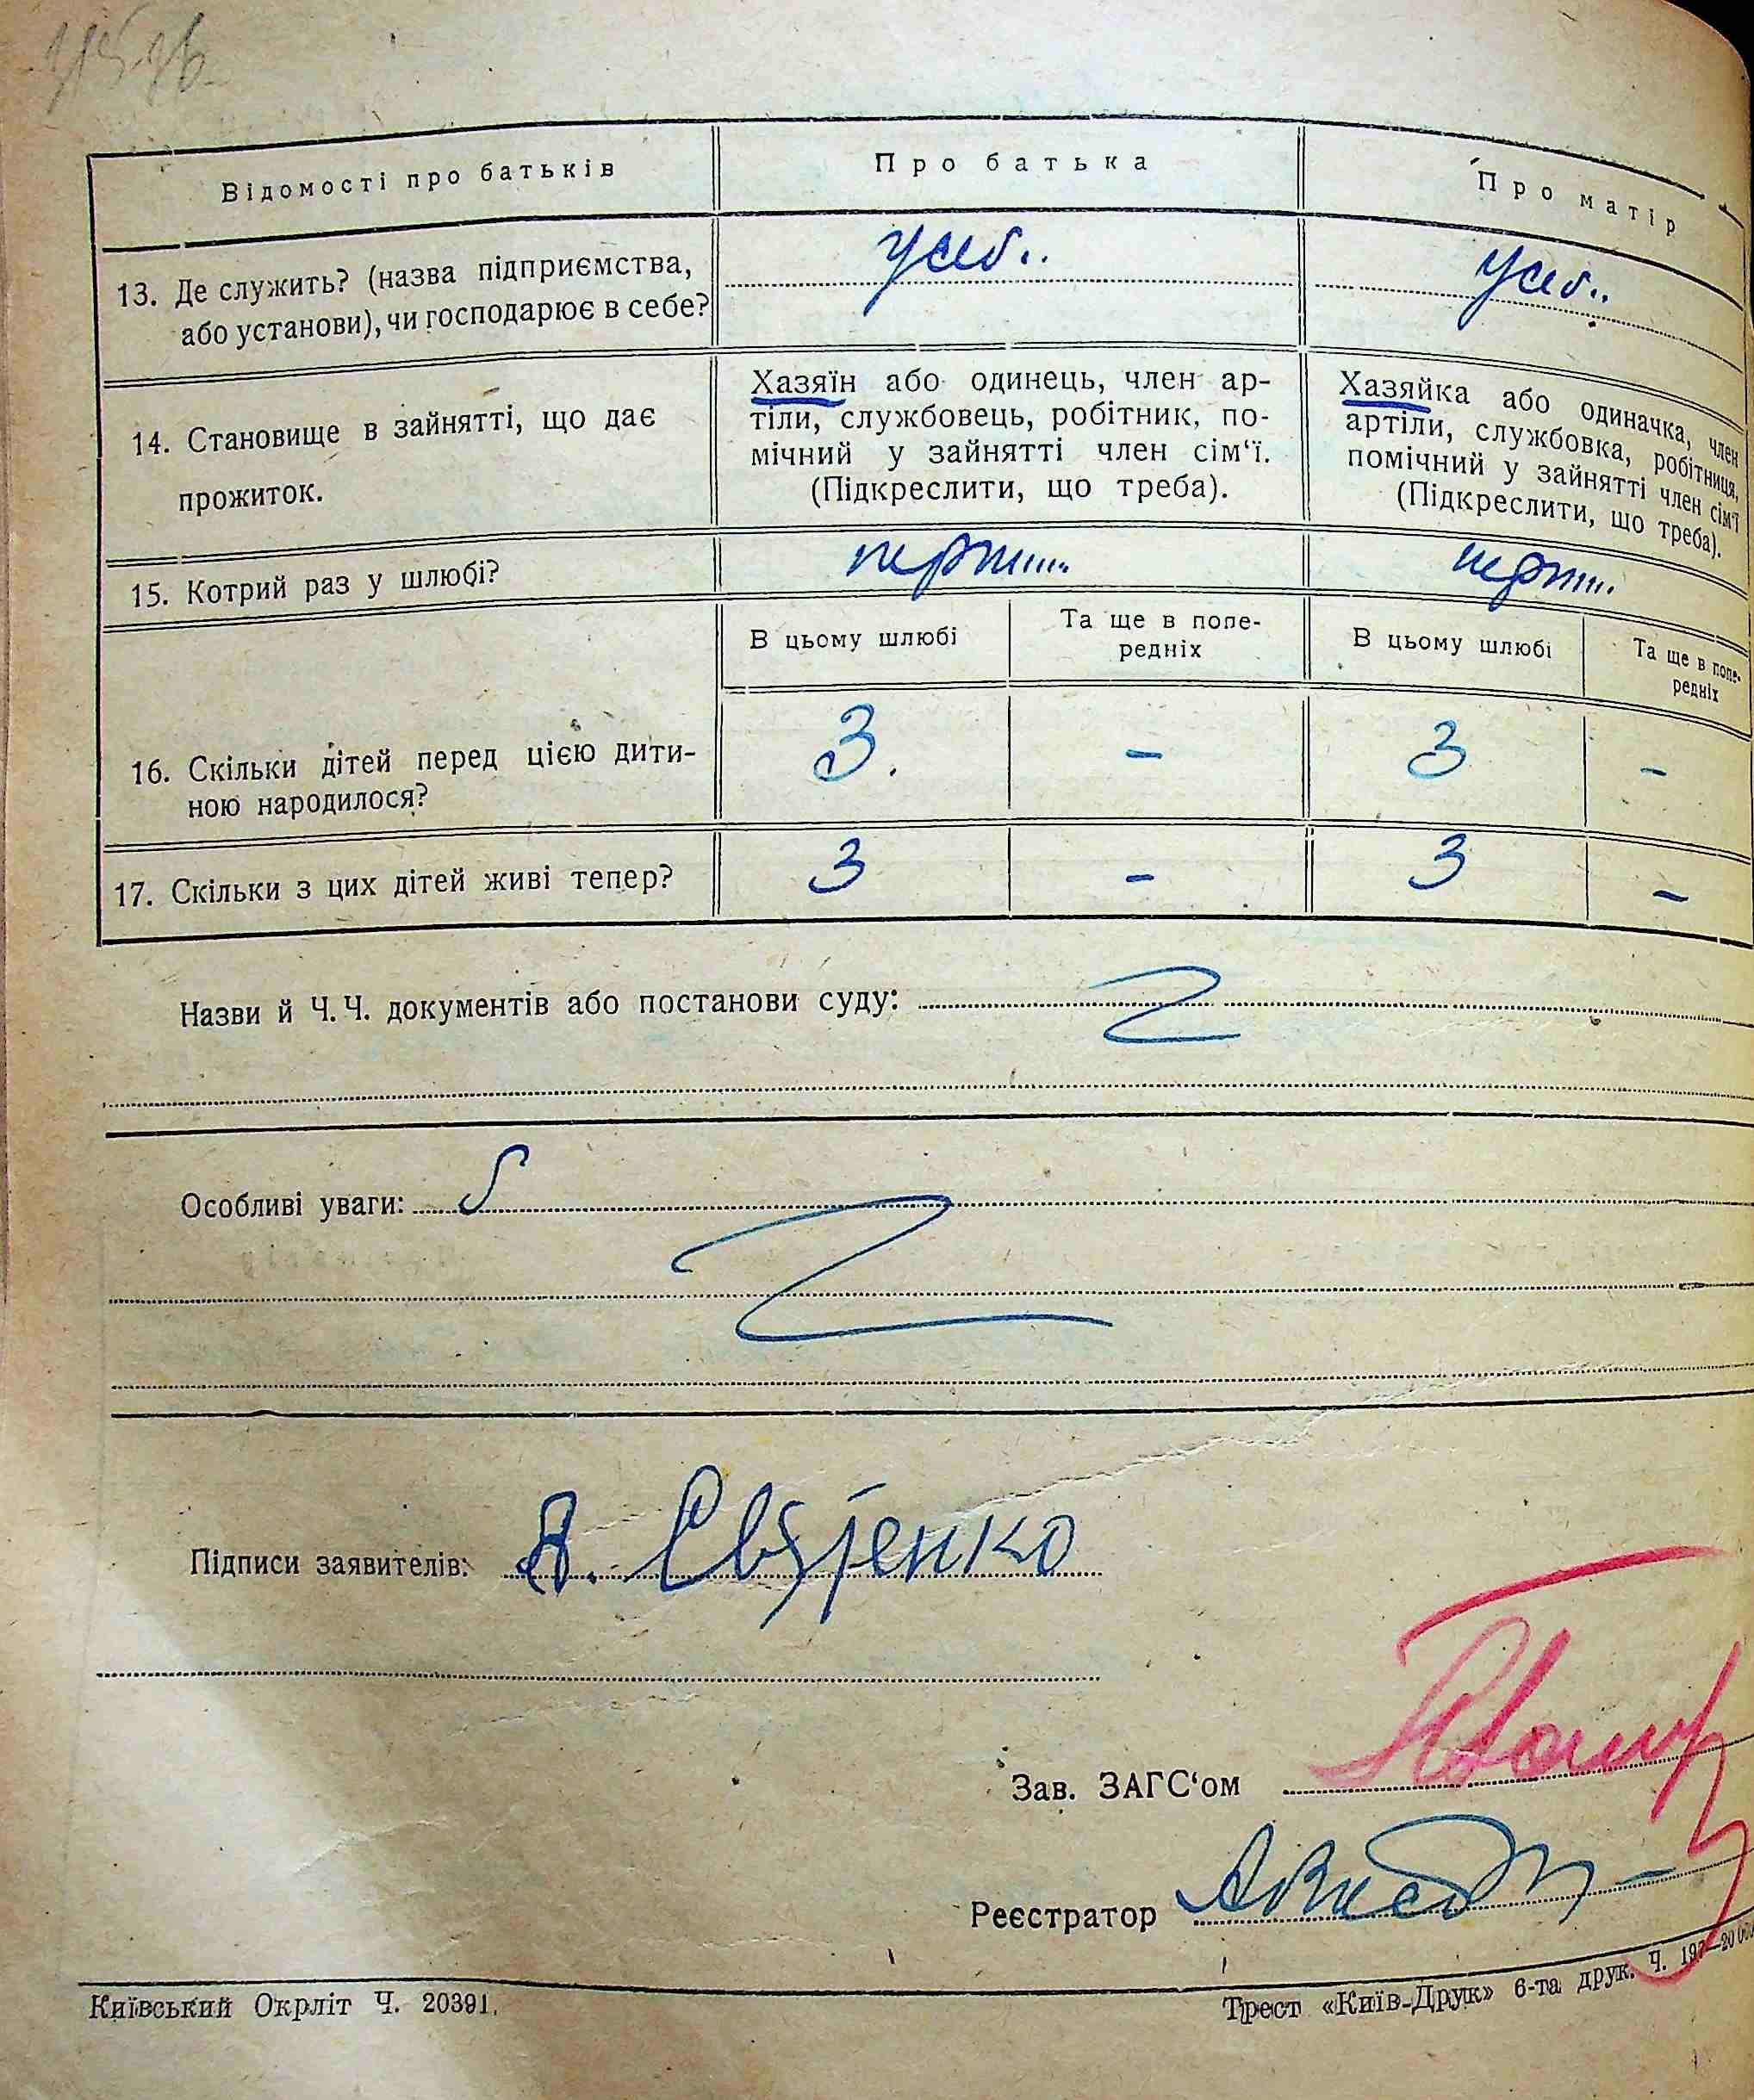 Відомості про батьків
Про батька
Про матір
13. Де служить? (назва підприємства,
або установи), чи господарює в себе?
усеб..
усеб..
14. Становище в зайнятті, що дає
прожиток.
Хазяїн або одинець, член ар-
тіли, службовець, робітник, по-
мічний у зайнятті член сім‘ї.
(Підкреслити, що треба).
Хазяйка або одиначка, член
артіли, службовка, робітниця,
помічний у зайнятті член сім‘ї
(Підкреслити, що треба).
15. Котрий раз у шлюбі?
В цьому шлюбі
Та ще в попе-
редніх
В цьому шлюбі
Та ще в попе-
редніх
16. Скільки дітей перед цією дити-
ною народилося?
3. - 3 -
17. Скільки з цих дітей живі тепер?
3 - 3 -
Назви й Ч. Ч. документів або постанови суду:
Особливі уваги:
Підписи заявителів: Я. Євтуєнко
Зав. ЗАГС‘ом
Реєстратор
Київський Окрліт Ч. 20391.
Трест «Київ-Друк» 6-та друк. Ч.